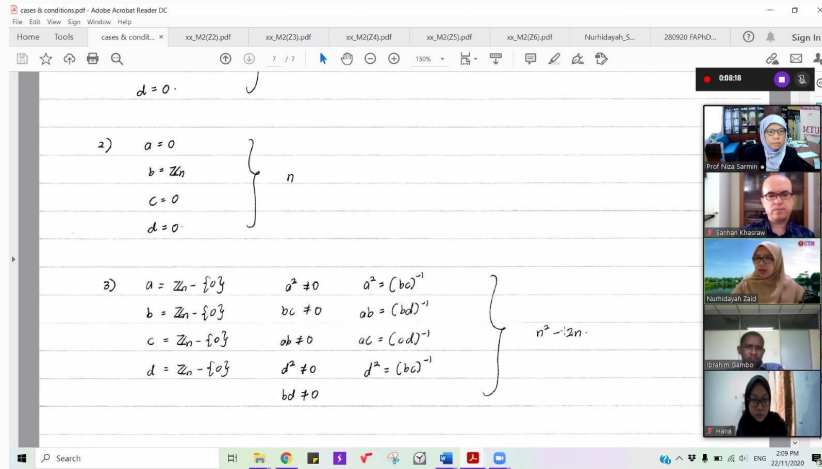 cases & conditions.pdf - Adobe Acrobat Reader DC
File Edit View Sign Window Help
Home Tools cases & condit... × xx_M2(Z2).pdf xx_M2(Z3).pdf xx_M2(Z4).pdf xx_M2(Z5).pdf xx_M2(Z6).pdf Nurhidayah_S... 280920 FAPhD... Sign In
7 / 7 150%
0:08:18
d = 0.
2) a = 0
b = ℤn
n
c = 0
d = 0.
3) a = ℤn - {0} a² ≠ 0 a² = (bc)⁻¹
b = ℤn - {0} bc ≠ 0 ab = (bd)⁻¹
c = ℤn - {0} ab ≠ 0 ac = (cd)⁻¹
n² - 2n.
d = ℤn - {0} d² ≠ 0 d² = (bc)⁻¹
bd ≠ 0
MTU
Prof Niza Sarmin
Sanhan Khasraw
UTM
Nurhidayah Zaid
Ibrahim Gambo
Hana
Search
ENG 2:09 PM
22/11/2020